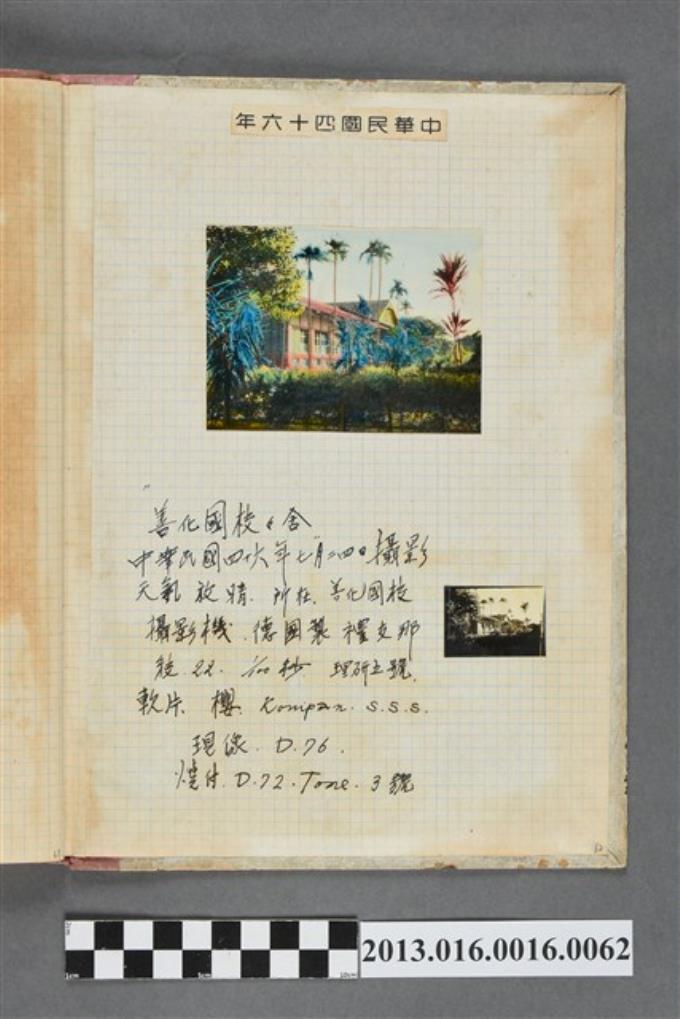 年六十四國民華中
善化國校々舍
中華民國四十六年七月二四日攝影
天氣 放晴. 所在. 善化國校
攝影機. 德國製 禮克那
22. 1/100 秒. 理研五號.
軟片 櫻. Konipan. S.S.S.
現像. D.76.
燒付. D.72. Tone. 3 號
2013.016.0016.0062